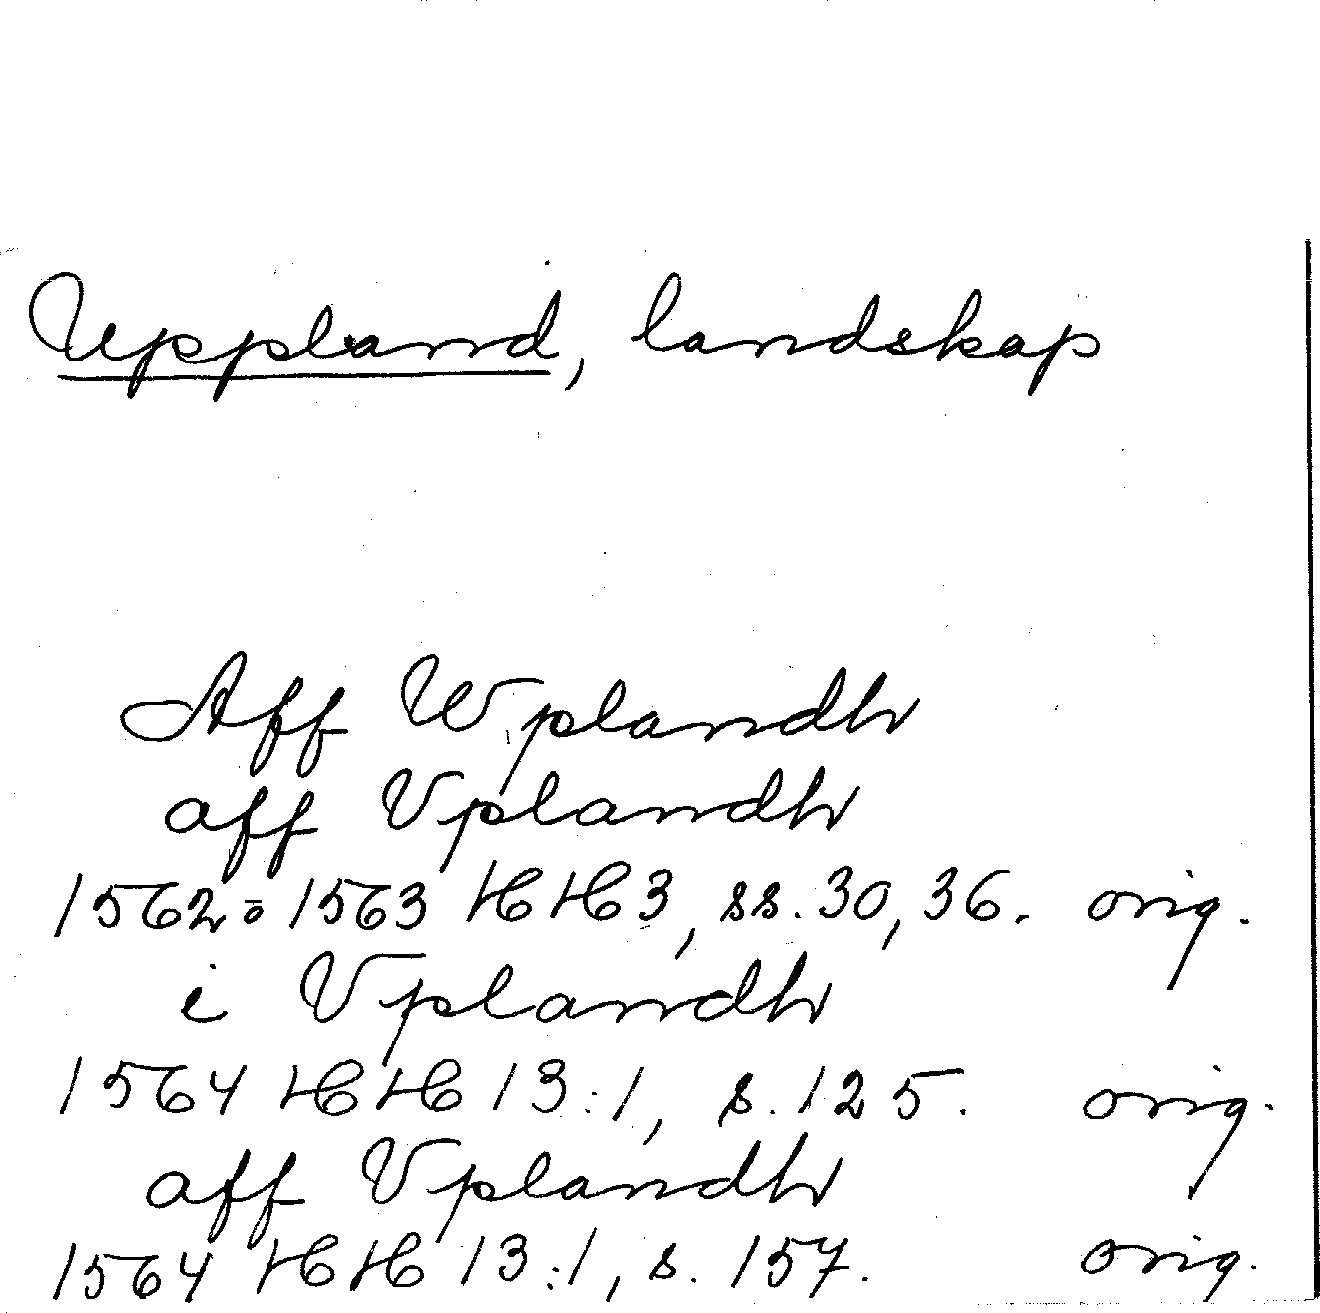 Uppland, landskap
Aff Wplandh
aff Vplandh
1562-1563 HH3, ss. 30, 36. orig.
i Vplandh
1564 HH 13:1, s. 125. orig.
aff Vplandh
1564 HH 13:1, s. 157. orig.